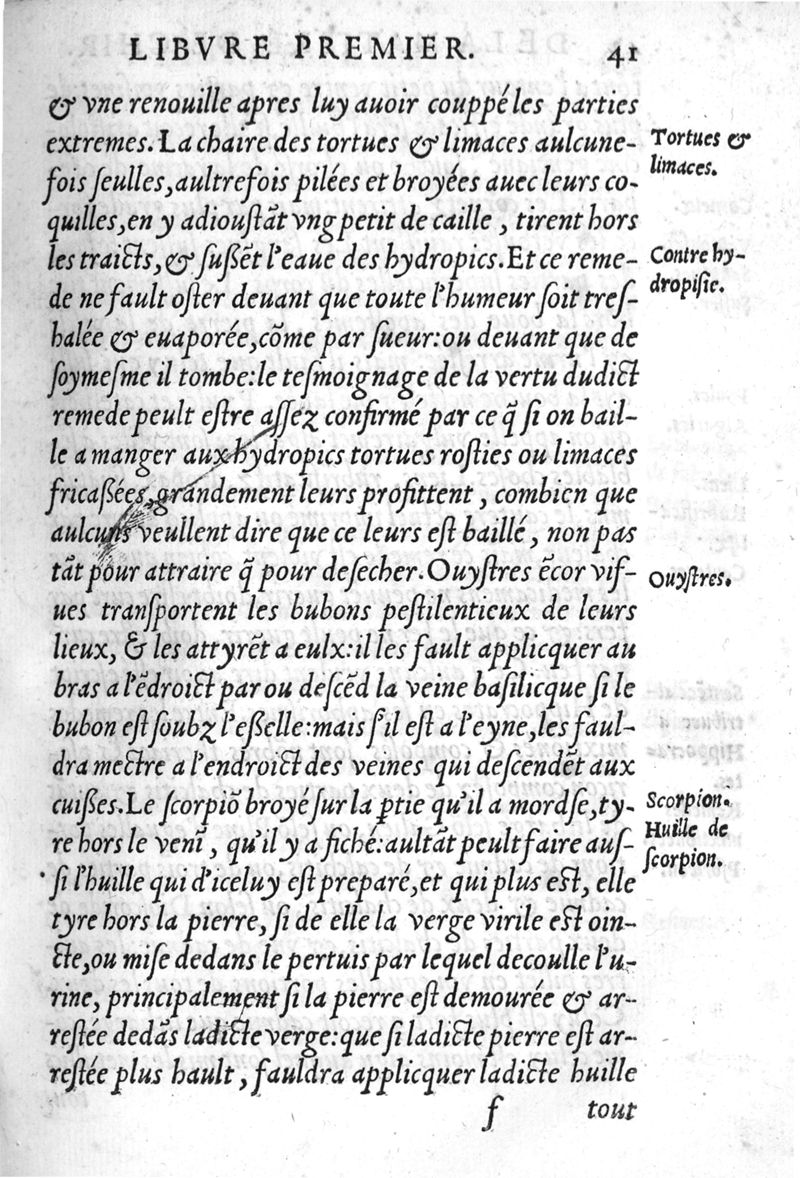 LIBVRE PREMIER. 41
& vne renouille apres luy auoir couppé les parties
extremes. La chaire des tortues & limaces aulcune-
fois ſeulles, aultrefois pilées et broyées auec leurs co-
quilles, en y adiouſtāt vng petit de caille, tirent hors
les traicts, & ſuſſēt l'eaue des hydropics. Et ce reme-
de ne fault oſter deuant que toute l'humeur ſoit treſ-
halée & euaporée, cōme par ſueur: ou deuant que de
ſoymeſme il tombe: le teſmoignage de la vertu dudict
remede peult eſtre aſſez confirmé par ce q̄ ſi on bail-
le a manger aux hydropics tortues roſties ou limaces
fricaſſées, grandement leurs profittent, combien que
aulcuns veullent dire que ce leurs eſt baillé, non pas
tāt pour attraire q̄ pour deſecher. Ouyſtres ēcor viſ-
ues tranſportent les bubons peſtilentieux de leurs
lieux, & les attyrēt a eulx: il les fault applicquer au
bras a l'ēdroict par ou deſcēd la veine baſilicque ſi le
bubon eſt ſoubz l'eſſelle: mais ſ'il eſt a l'eyne, les faul-
dra mectre a l'endroict des veines qui deſcendēt aux
cuiſſes. Le ſcorpiō broyé ſur la ꝑtie qu'il a mordſe, ty-
re hors le venī, qu'il y a fiché: aultāt peult faire auſ-
ſi l'huille qui d'iceluy eſt preparé, et qui plus eſt, elle
tyre hors la pierre, ſi de elle la verge virile eſt oin-
cte, ou miſe dedans le pertuis par lequel decoulle l'u-
rine, principalement ſi la pierre eſt demourée & ar-
reſtée dedās ladicte verge: que ſi ladicte pierre eſt ar-
reſtée plus hault, fauldra applicquer ladicte huille
f tout
Tortues &
limaces.
Contre hy-
dropiſie.
Ouyſtres.
Scorpion.
Huille de
ſcorpion.